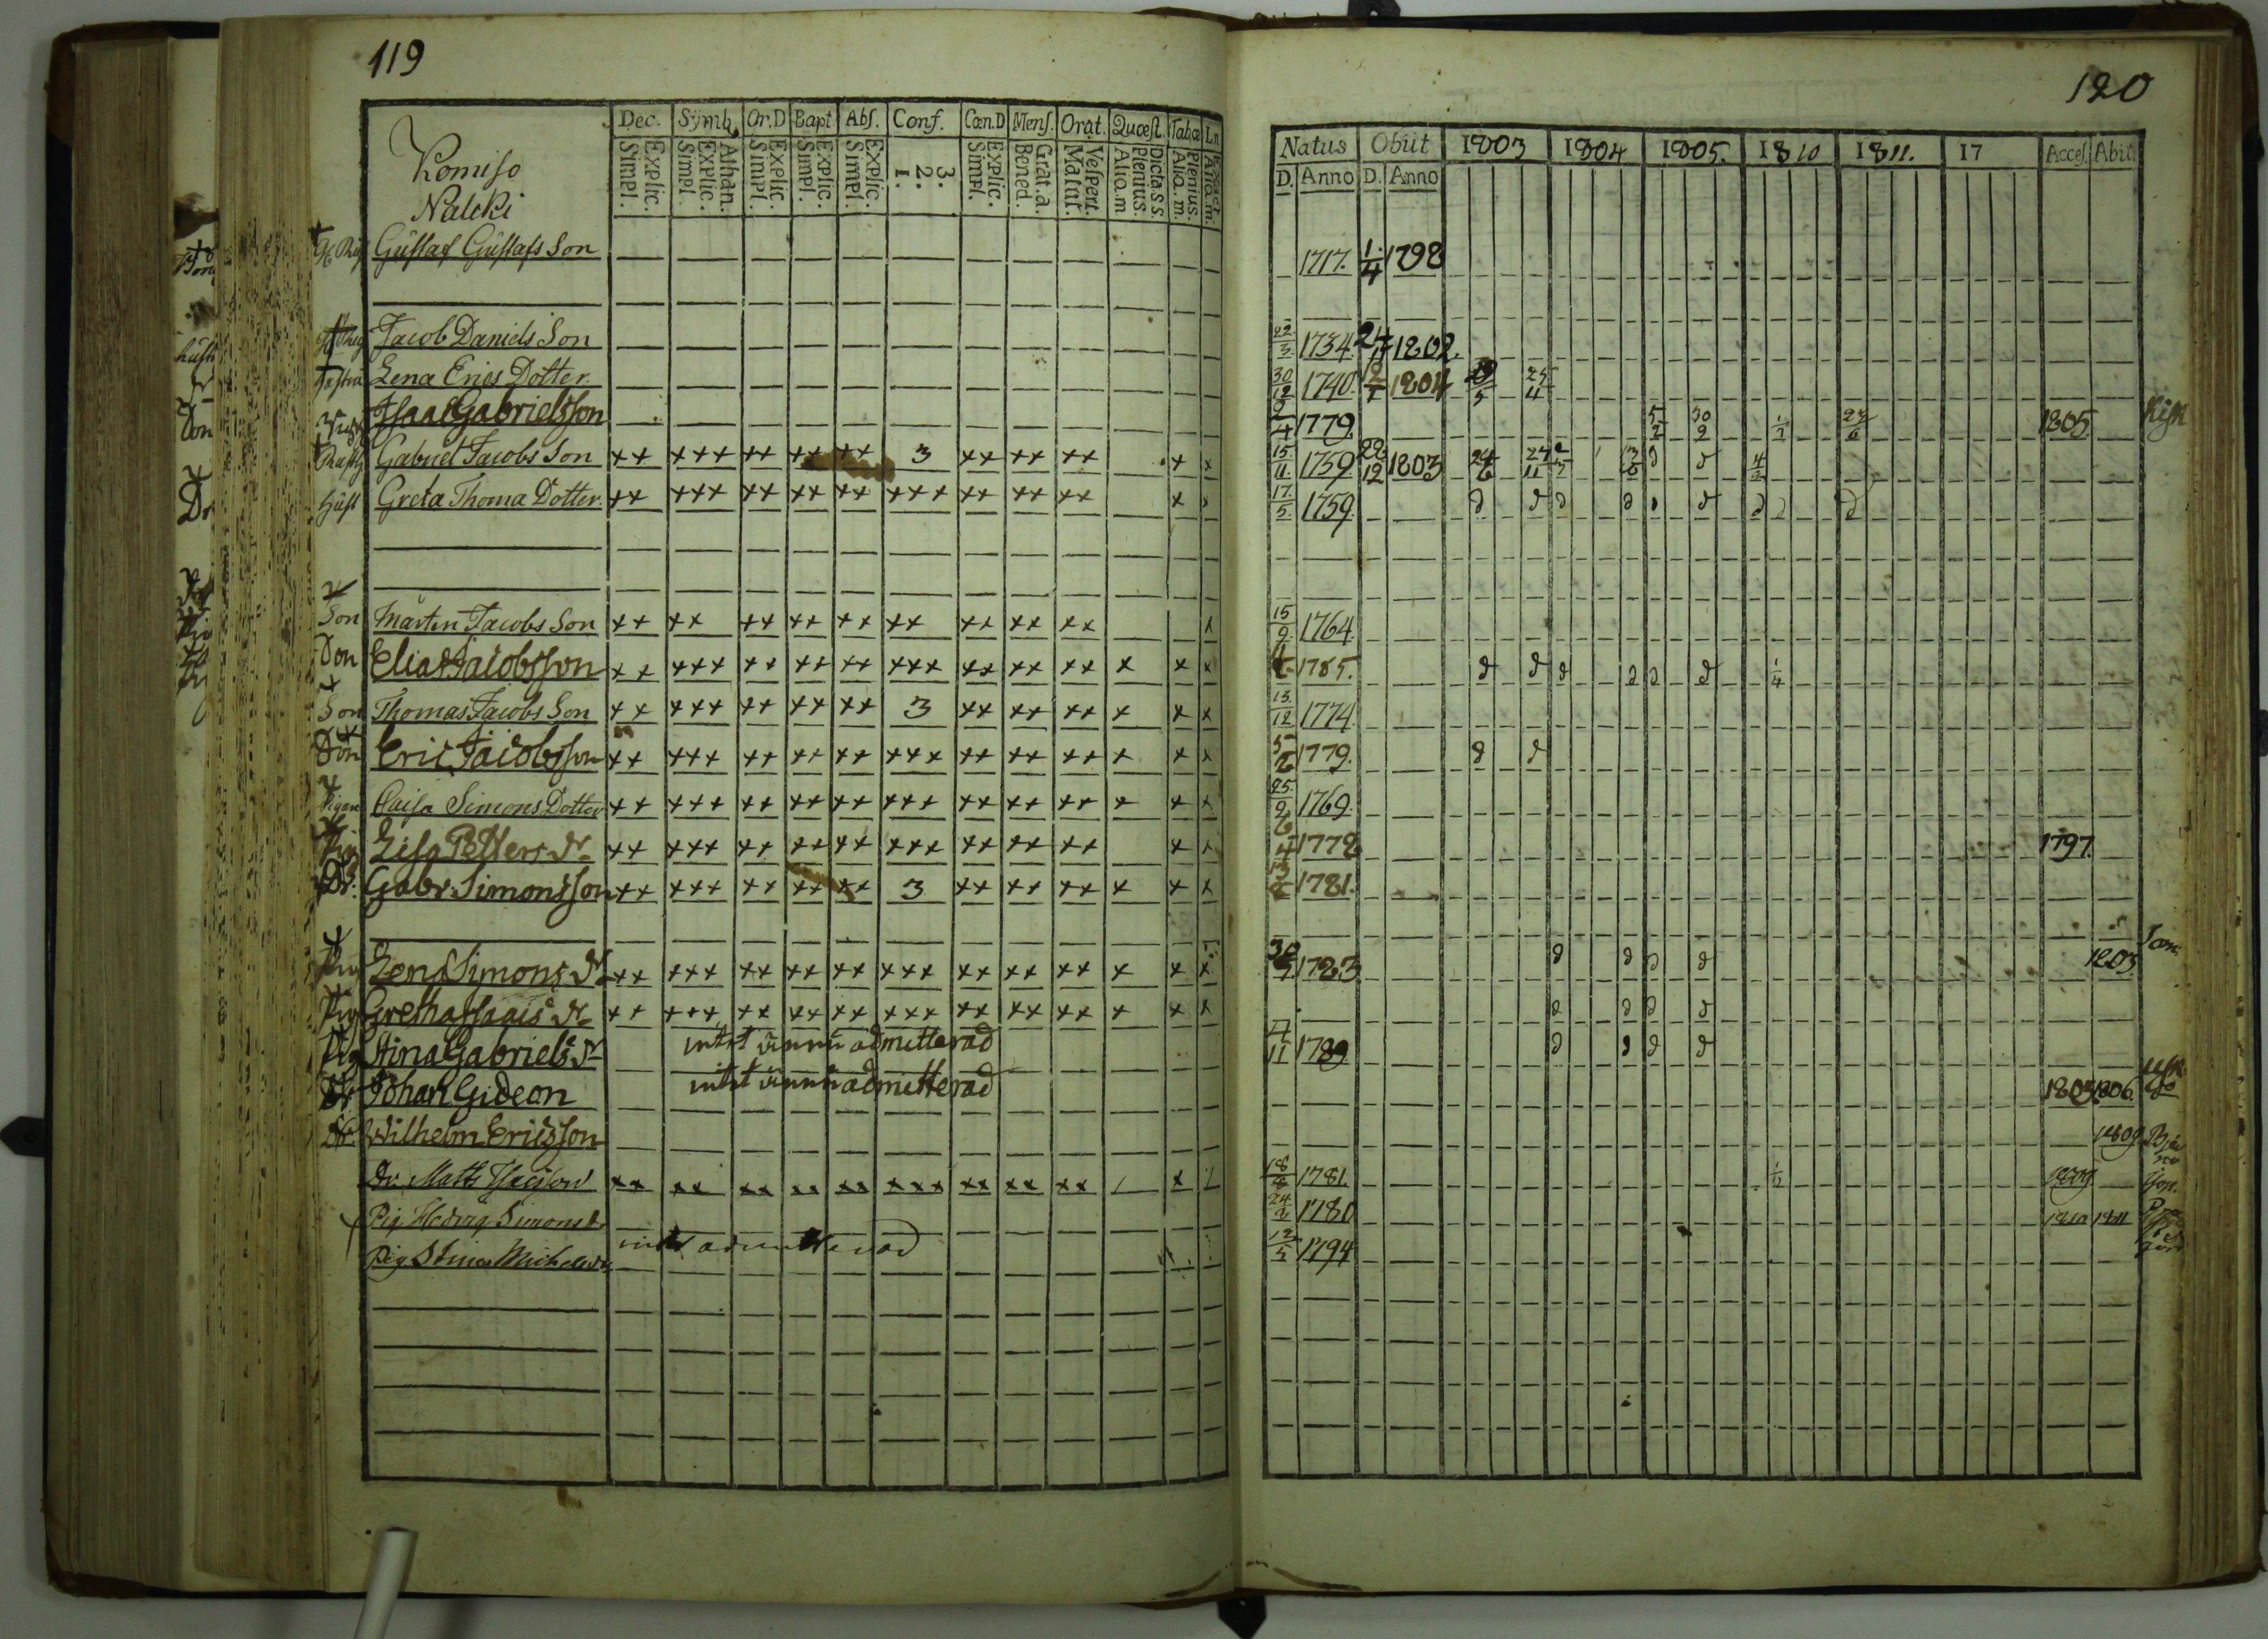 119
Komiso
Nalcki
Dec. Symb. Or.D Bapt Abſ. Conf. Cœn.D Menſ. Orat. Quœſt. Tabœ
Explic. Simpl. Athan. Explic. Simpl. Explic. Simpl. Explic. Simpl. Explic. Simpl. 3. 2. 1. Explic. Simpl. Grat.a. Bened. Veſpert. Matut. Dicta.s s. Plenius. Alio.m Plenius. Alia.m.
Guſtaf Guſtafs Son
Jacob Daniels Son
Lena Erics Dotter
Iſaac Gabrielsſon
Gabriel Jacobs Son ++ +++ ++ ++ ++ 3 ++ ++ ++ + x
Huſt Greta Thoma Dotter. ++ +++ ++ ++ ++ +++ ++ ++ ++ x x
Son Mårten Jacobs Son ++ ++ ++ ++ ++ ++ ++ ++ ++ x
Son Elias Jacobsſon ++ +++ ++ ++ ++ +++ ++ ++ ++ x x x
Son Thomas Jacobs Son ++ +++ ++ ++ ++ 3 ++ ++ ++ x x x
Son Eric Jacobsſon ++ +++ ++ ++ ++ +++ ++ ++ ++ x x x
Pigan Caiſa Simons Dotter ++ +++ ++ ++ ++ +++ ++ ++ ++ x x x
Pig Liſa Petters dr ++ +++ ++ ++ ++ +++ ++ ++ ++ x x
Dr. Gabr. Simonsſon ++ +++ ++ ++ ++ 3 ++ ++ ++ x x x
Pig Lena Simons dr ++ +++ ++ ++ ++ +++ ++ ++ ++ x x x
Pig Gretha Iſaacs dr ++ +++ ++ ++ ++ +++ ++ ++ ++ x x x
Pig Stina Gabriels dr intet ännu admitterad
Dr Johan Gideon intet ännu admitterad
Dr Wilhelm Ericsſon
Dr. Matts Iſacſson ++ ++ ++ ++ ++ +++ ++ ++ ++ / x /
Pig Hedvig Simonsdr
Pig Stina Michelsdr admitterad
120
Natus Obiit 1803 1804 1805. 1810 1811. 17 Acceſ. Abit.
D. Anno D. Anno
1717. 1/4 1798
22/3 1734. 1802.
30/12 1740. 1804 25/4
1779. 5/2 30/9 1/2 1805.
15/11 1759. 22/12 1803 24/6
17/5. 1759.
15/9 1764.
1785. 1/4
13/12 1774.
5/2 1779.
25/2 1769.
1772 1797.
1781.
1783 1803. Jan
4/11 1789
1805 1806.
1809
18/ 1781. 1/2 1809
24/2 1780 1810 1811
12/5 1794